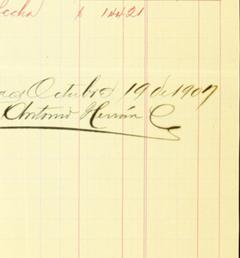 fecha $ 144 21
Octubre 19 de 1907
Antonio Herrán C